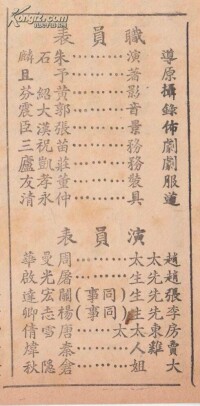 職員表
導演………朱石麟
原著………予且
攝影………黃紹芬
錄音………郭大震
佈景………張漢臣
劇務………苗祝三
劇務………莊凱廬
服裝………董孝友
道具………仲永清
演員表
趙太太………周曼華
趙先生………屠光啟
張先生(同事)…關宏達
李先生(同事)…楊志卿
房東太太………唐雪倩
賈雞人………秦煒
大姐………倉隱秋